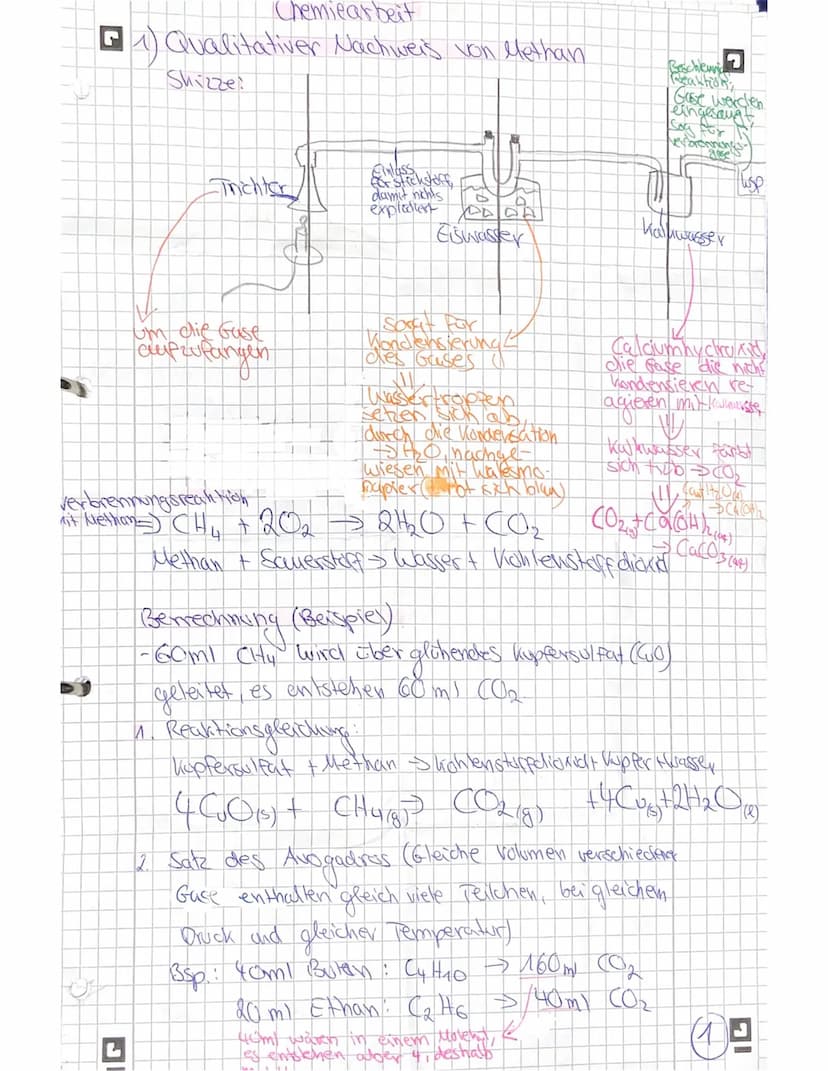 Chemiearbeit
1) Qualitativer Nachweis von Methan
Skizze:
Beschleunigt
Reaktion,
Gase werden
eingesaugt,
Sog für
verbrennungs-
gase
Wsp
Trichter
Einlass
für stickstoff,
damit nichts
explodiert
Eiswasser
Kalkwasser
um die Gase
aufzufangen
sorgt für
Kondensierung
des Gases
⇓
Wassertropfen
setzen sich ab,
durch die Kondensation
→ H2O, nachge-
wiesen mit Watesmo-
papier (färbt sich blau)
Calciumhydroxid,
die Gase die nicht
kondensieren re-
agieren mit Kalkwasser
⇓
Kalkwasser färbt
sich trüb → CO2
⇓
verbrennungsreaktion
mit Methan ⇒ CH4 + 2O2 → 2H2O + CO2
CO2(g) + Ca(OH)2(aq)
→ CaCO3(aq)
Methan + Sauerstoff → Wasser + Kohlenstoffdioxid
Berrechnung (Beispiel)
- 60ml CH4 wird über glühendes Kupfersulfat (CuO)
geleitet, es entstehen 60 ml CO2
1. Reaktionsgleichung:
Kupfersulfat + Methan → Kohlenstoffdioxid + Kupfer + Wasser
4CuO(s) + CH4(g) → CO2(g) + 4Cu(s) + 2H2O(l)
2. Satz des Avogadros (Gleiche Volumen verschiedener
Gase enthalten gleich viele Teilchen, bei gleichem
Druck und gleicher Temperatur)
Bsp.: 40ml Butan: C4H10 → 160ml CO2
20 ml Ethan: C2H6 → 40ml CO2
40ml wären in einem Molekül,
es entstehen aber 4, deshalb
1